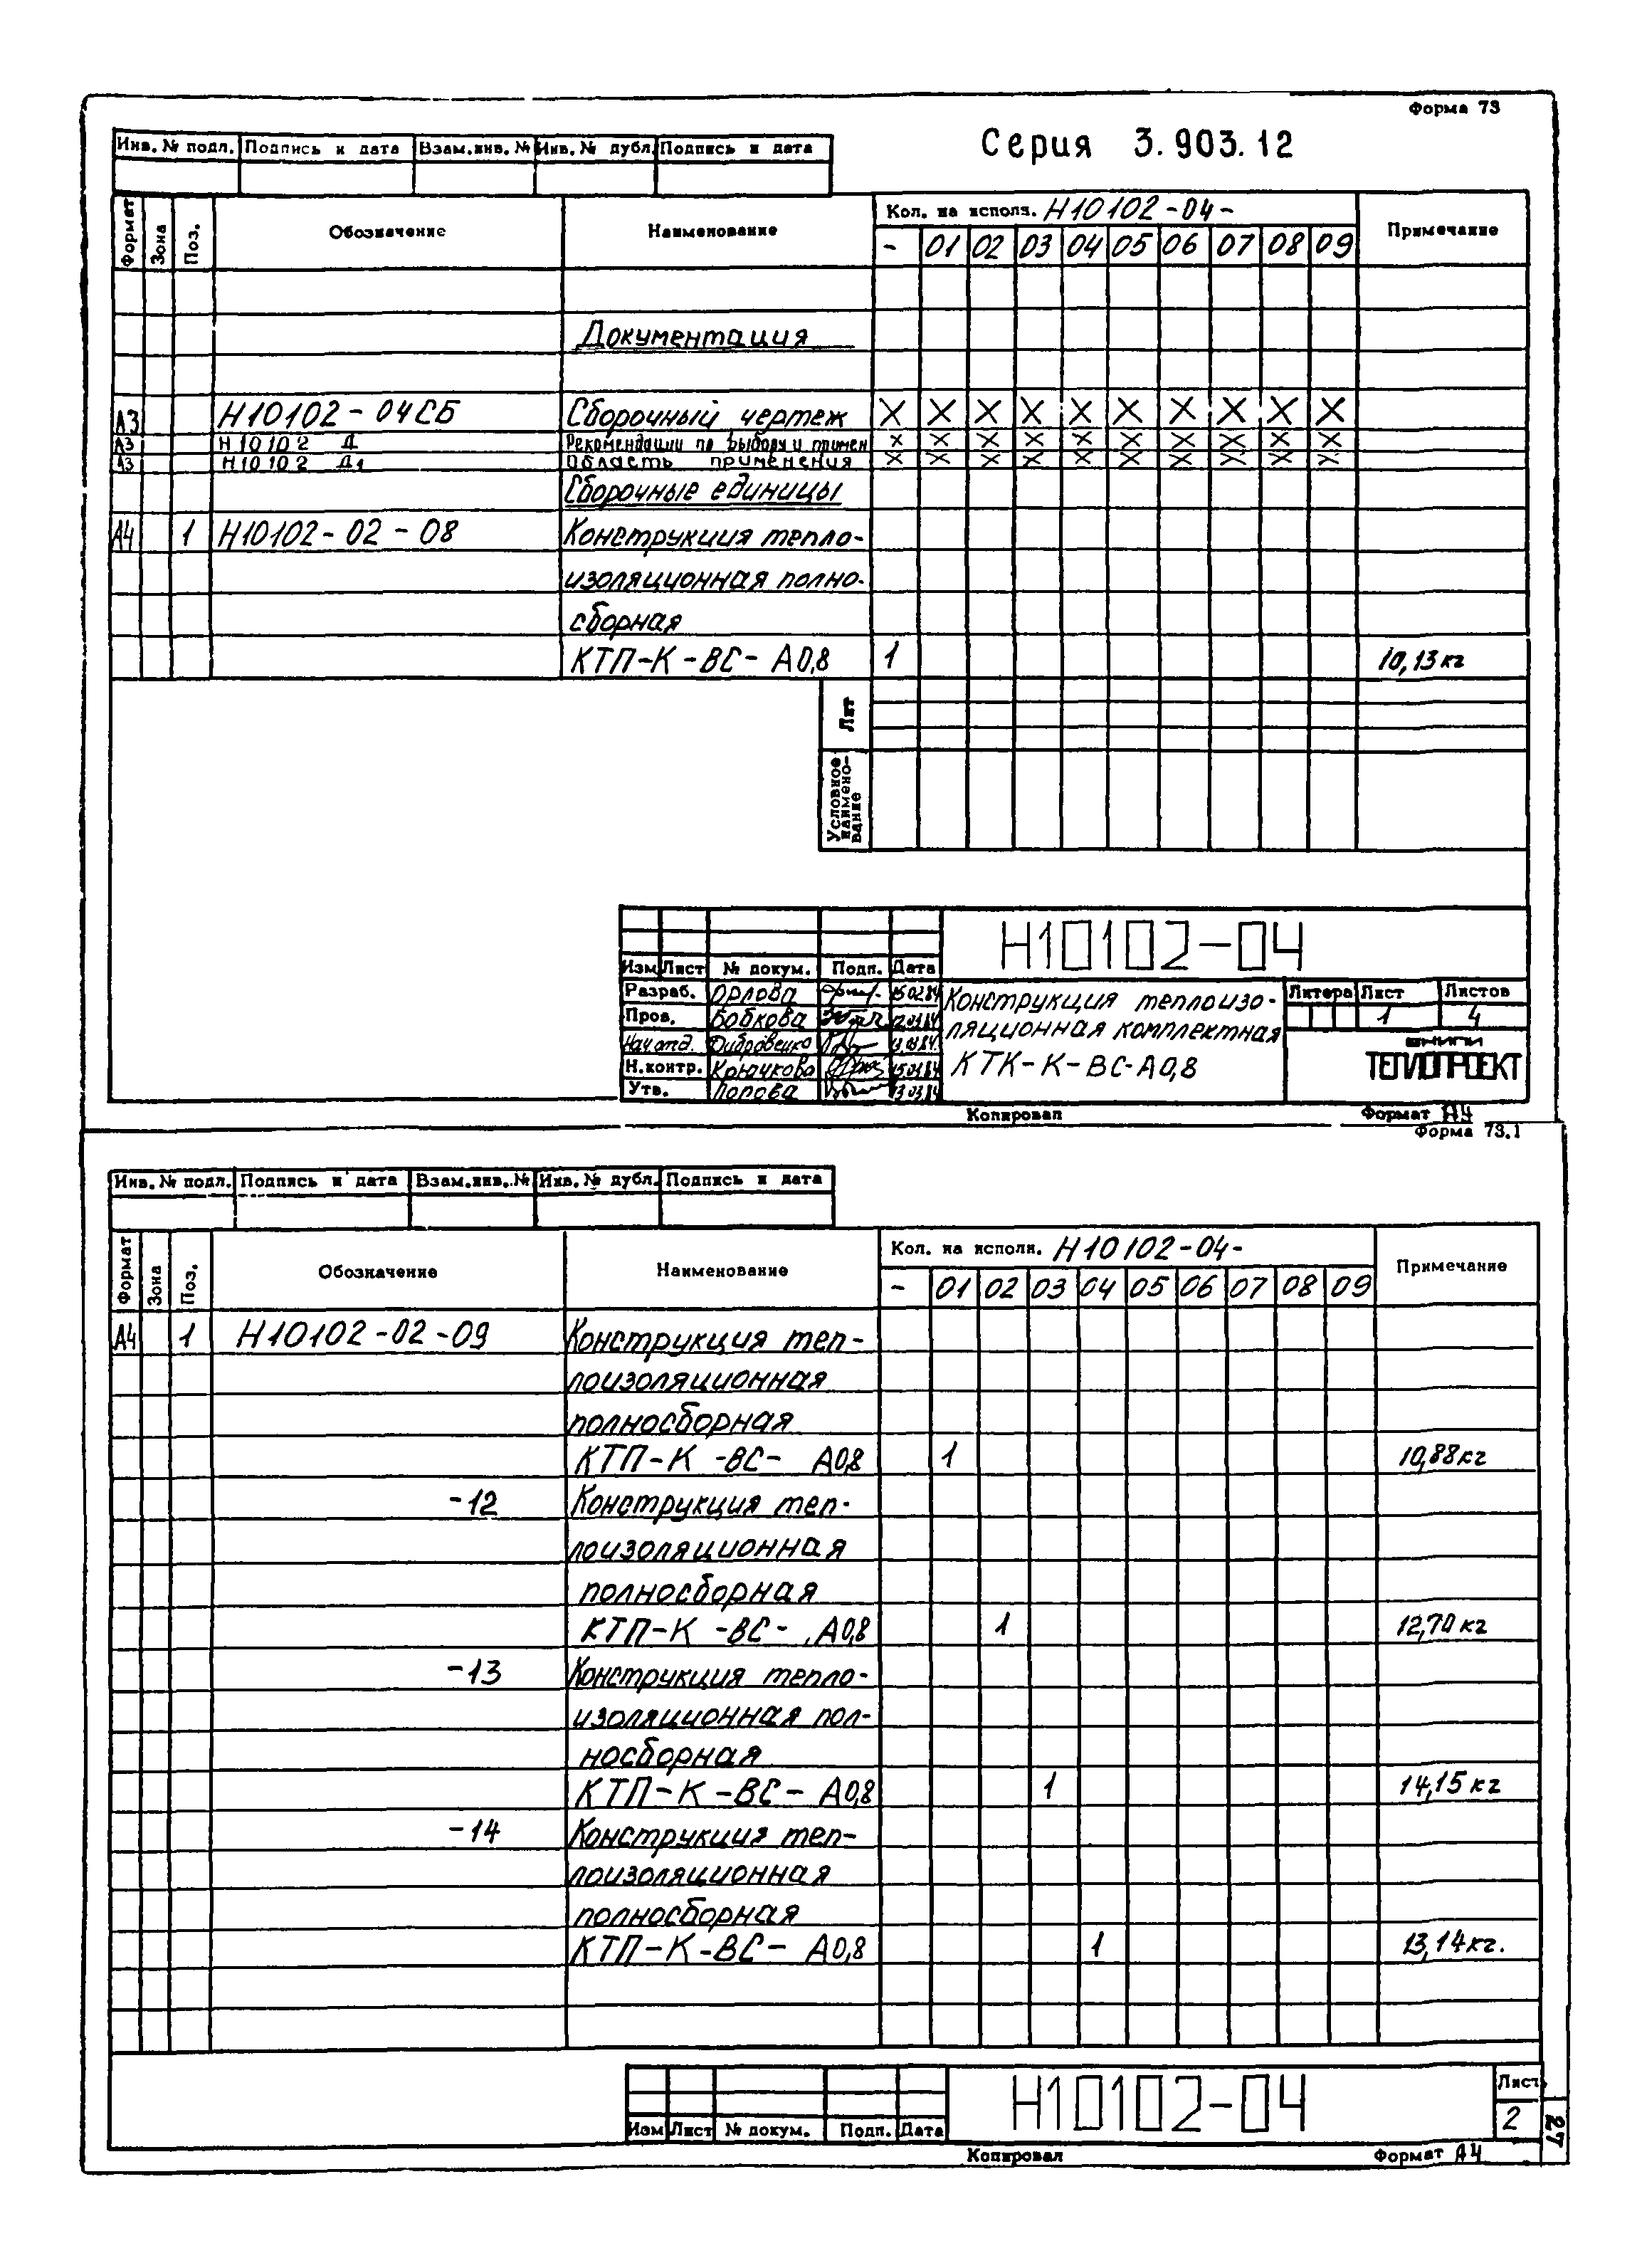 Форма 73
Серия 3.903.12
Инв. № подл. Подпись и дата Взам.инв. № Инв. № дубл. Подпись и дата
Формат Зона Поз. Обозначение Наименование Кол. на исполн. Н10102-04- Примечание
- 01 02 03 04 05 06 07 08 09
Документация
А3 Н10102-04СБ Сборочный чертеж X X X X X X X X X X
А3 Н10102 Д Рекомендации по выбору и примен X X X X X X X X X X
А3 Н10102 Д1 Область применения X X X X X X X X X X
Сборочные единицы
А4 1 Н10102-02-08 Конструкция тепло-
изоляционная полно-
сборная
КТП-К-ВС- А0,8 1 10,13 кг
Лит
Условное наимено-вание
Н10102-04
Изм Лист № докум. Подп. Дата
Разраб. Орлова
Пров. Бобкова
Нач.отд.
Н.контр. Крючкова
Утв. Попова
Конструкция теплоизо-
ляционная комплектная
КТК-К-ВС-А0,8
Литера Лист Листов
1 4
ВНИПИ
ТЕПЛОПРОЕКТ
Копировал Формат А4
Форма 73.1
Инв. № подл. Подпись и дата Взам.инв. № Инв. № дубл. Подпись и дата
Формат Зона Поз. Обозначение Наименование Кол. на исполн. Н10102-04- Примечание
- 01 02 03 04 05 06 07 08 09
А4 1 Н10102-02-09 Конструкция теп-
лоизоляционная
полносборная
КТП-К -ВС- А0,8 1 10,88 кг
-12 Конструкция теп-
лоизоляционная
полносборная
КТП-К -ВС- А0,8 1 12,70 кг
-13 Конструкция тепло-
изоляционная пол-
носборная
КТП-К-ВС- А0,8 1 14,15 кг
-14 Конструкция теп-
лоизоляционная
полносборная
КТП-К-ВС- А0,8 1 13,14 кг.
Н10102-04
Лист
2
Изм Лист № докум. Подп. Дата
27
Копировал Формат А4